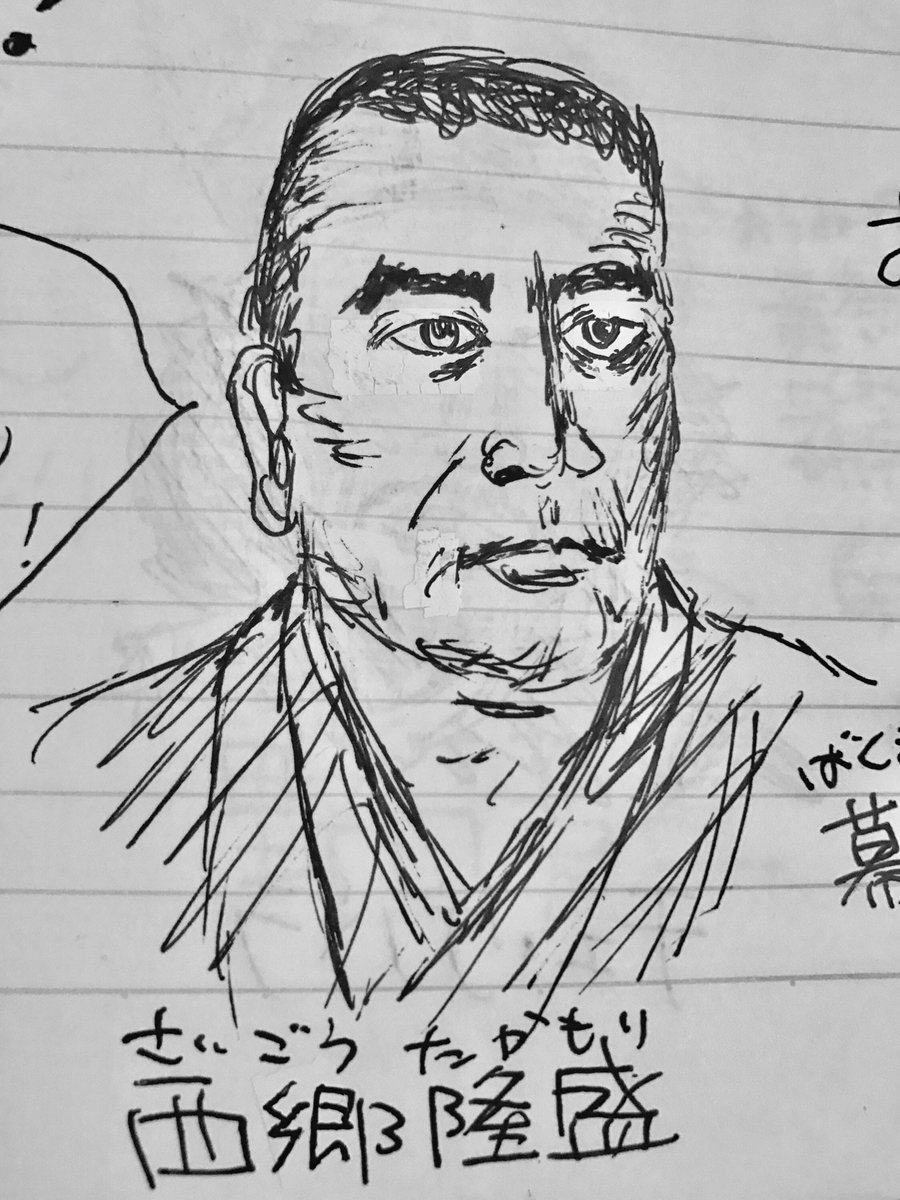 !
!
ばく
幕
さいごう たかもり
西郷隆盛